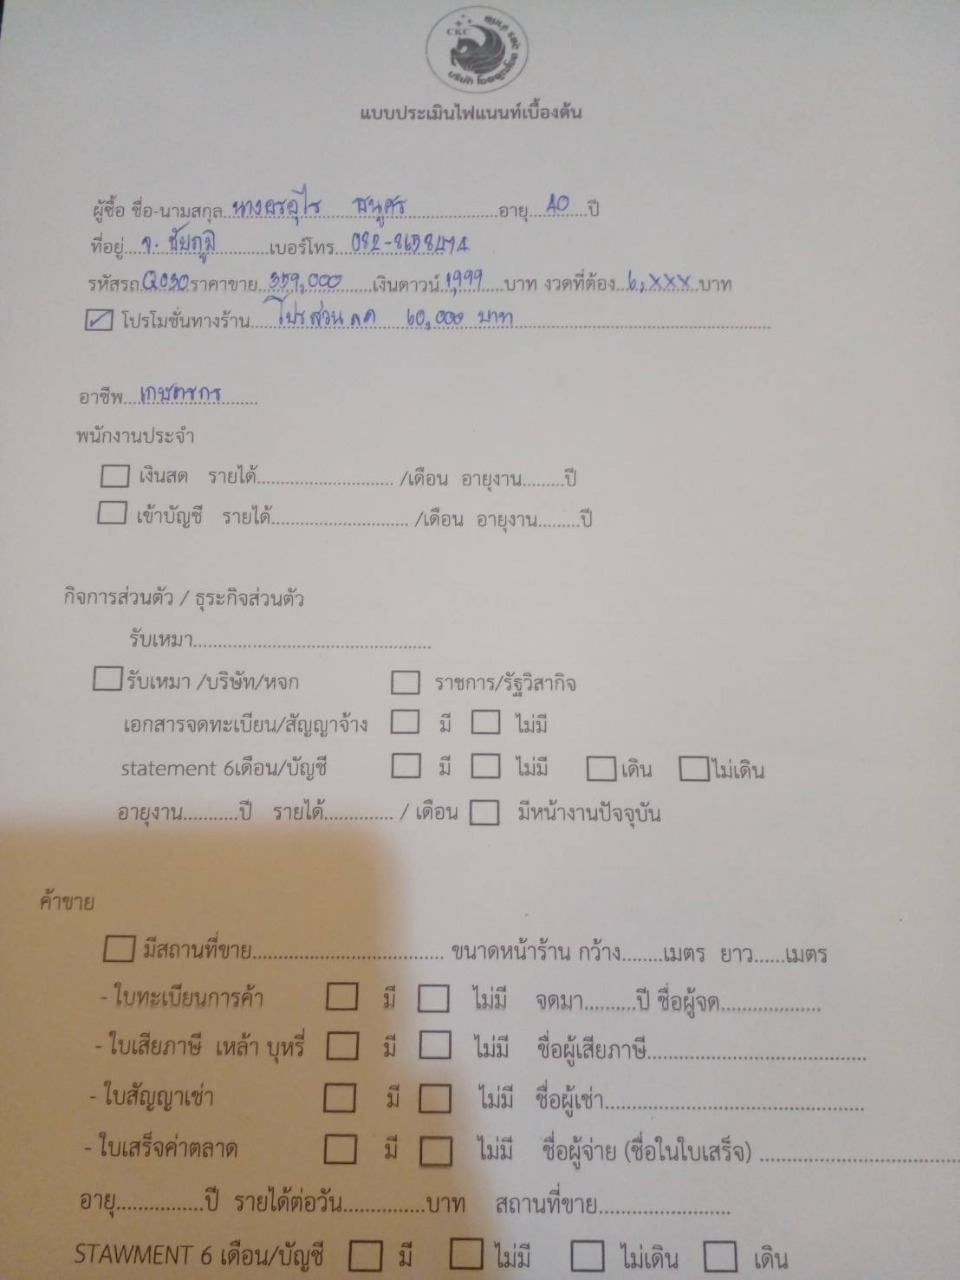 CKC
แบบประเมินไฟแนนท์เบื้องต้น
ผู้ซื้อ ชื่อ-นามสกุล นางอรอุไร ธนูศร อายุ 40 ปี
ที่อยู่ จ. ชัยภูมิ เบอร์โทร
รหัสรถ Q030 ราคาขาย 359,000 เงินดาวน์ 1,999 บาท งวดที่ต้อง 6,xxx บาท
โปรโมชั่นทางร้าน โปรส่วนลด 60,000 บาท
อาชีพ เกษตรกร
พนักงานประจำ
เงินสด รายได้ /เดือน อายุงาน ปี
เข้าบัญชี รายได้ /เดือน อายุงาน ปี
กิจการส่วนตัว / ธุระกิจส่วนตัว
รับเหมา
รับเหมา /บริษัท/หจก ราชการ/รัฐวิสากิจ
เอกสารจดทะเบียน/สัญญาจ้าง มี ไม่มี
statement 6เดือน/บัญชี มี ไม่มี เดิน ไม่เดิน
อายุงาน ปี รายได้ / เดือน มีหน้างานปัจจุบัน
ค้าขาย
มีสถานที่ขาย ขนาดหน้าร้าน กว้าง เมตร ยาว เมตร
- ใบทะเบียนการค้า มี ไม่มี จดมา ปี ชื่อผู้จด
- ใบเสียภาษี เหล้า บุหรี่ มี ไม่มี ชื่อผู้เสียภาษี
- ใบสัญญาเช่า มี ไม่มี ชื่อผู้เช่า
- ใบเสร็จค่าตลาด มี ไม่มี ชื่อผู้จ่าย (ชื่อในใบเสร็จ)
อายุ ปี รายได้ต่อวัน บาท สถานที่ขาย
STAWMENT 6 เดือน/บัญชี มี ไม่มี ไม่เดิน เดิน